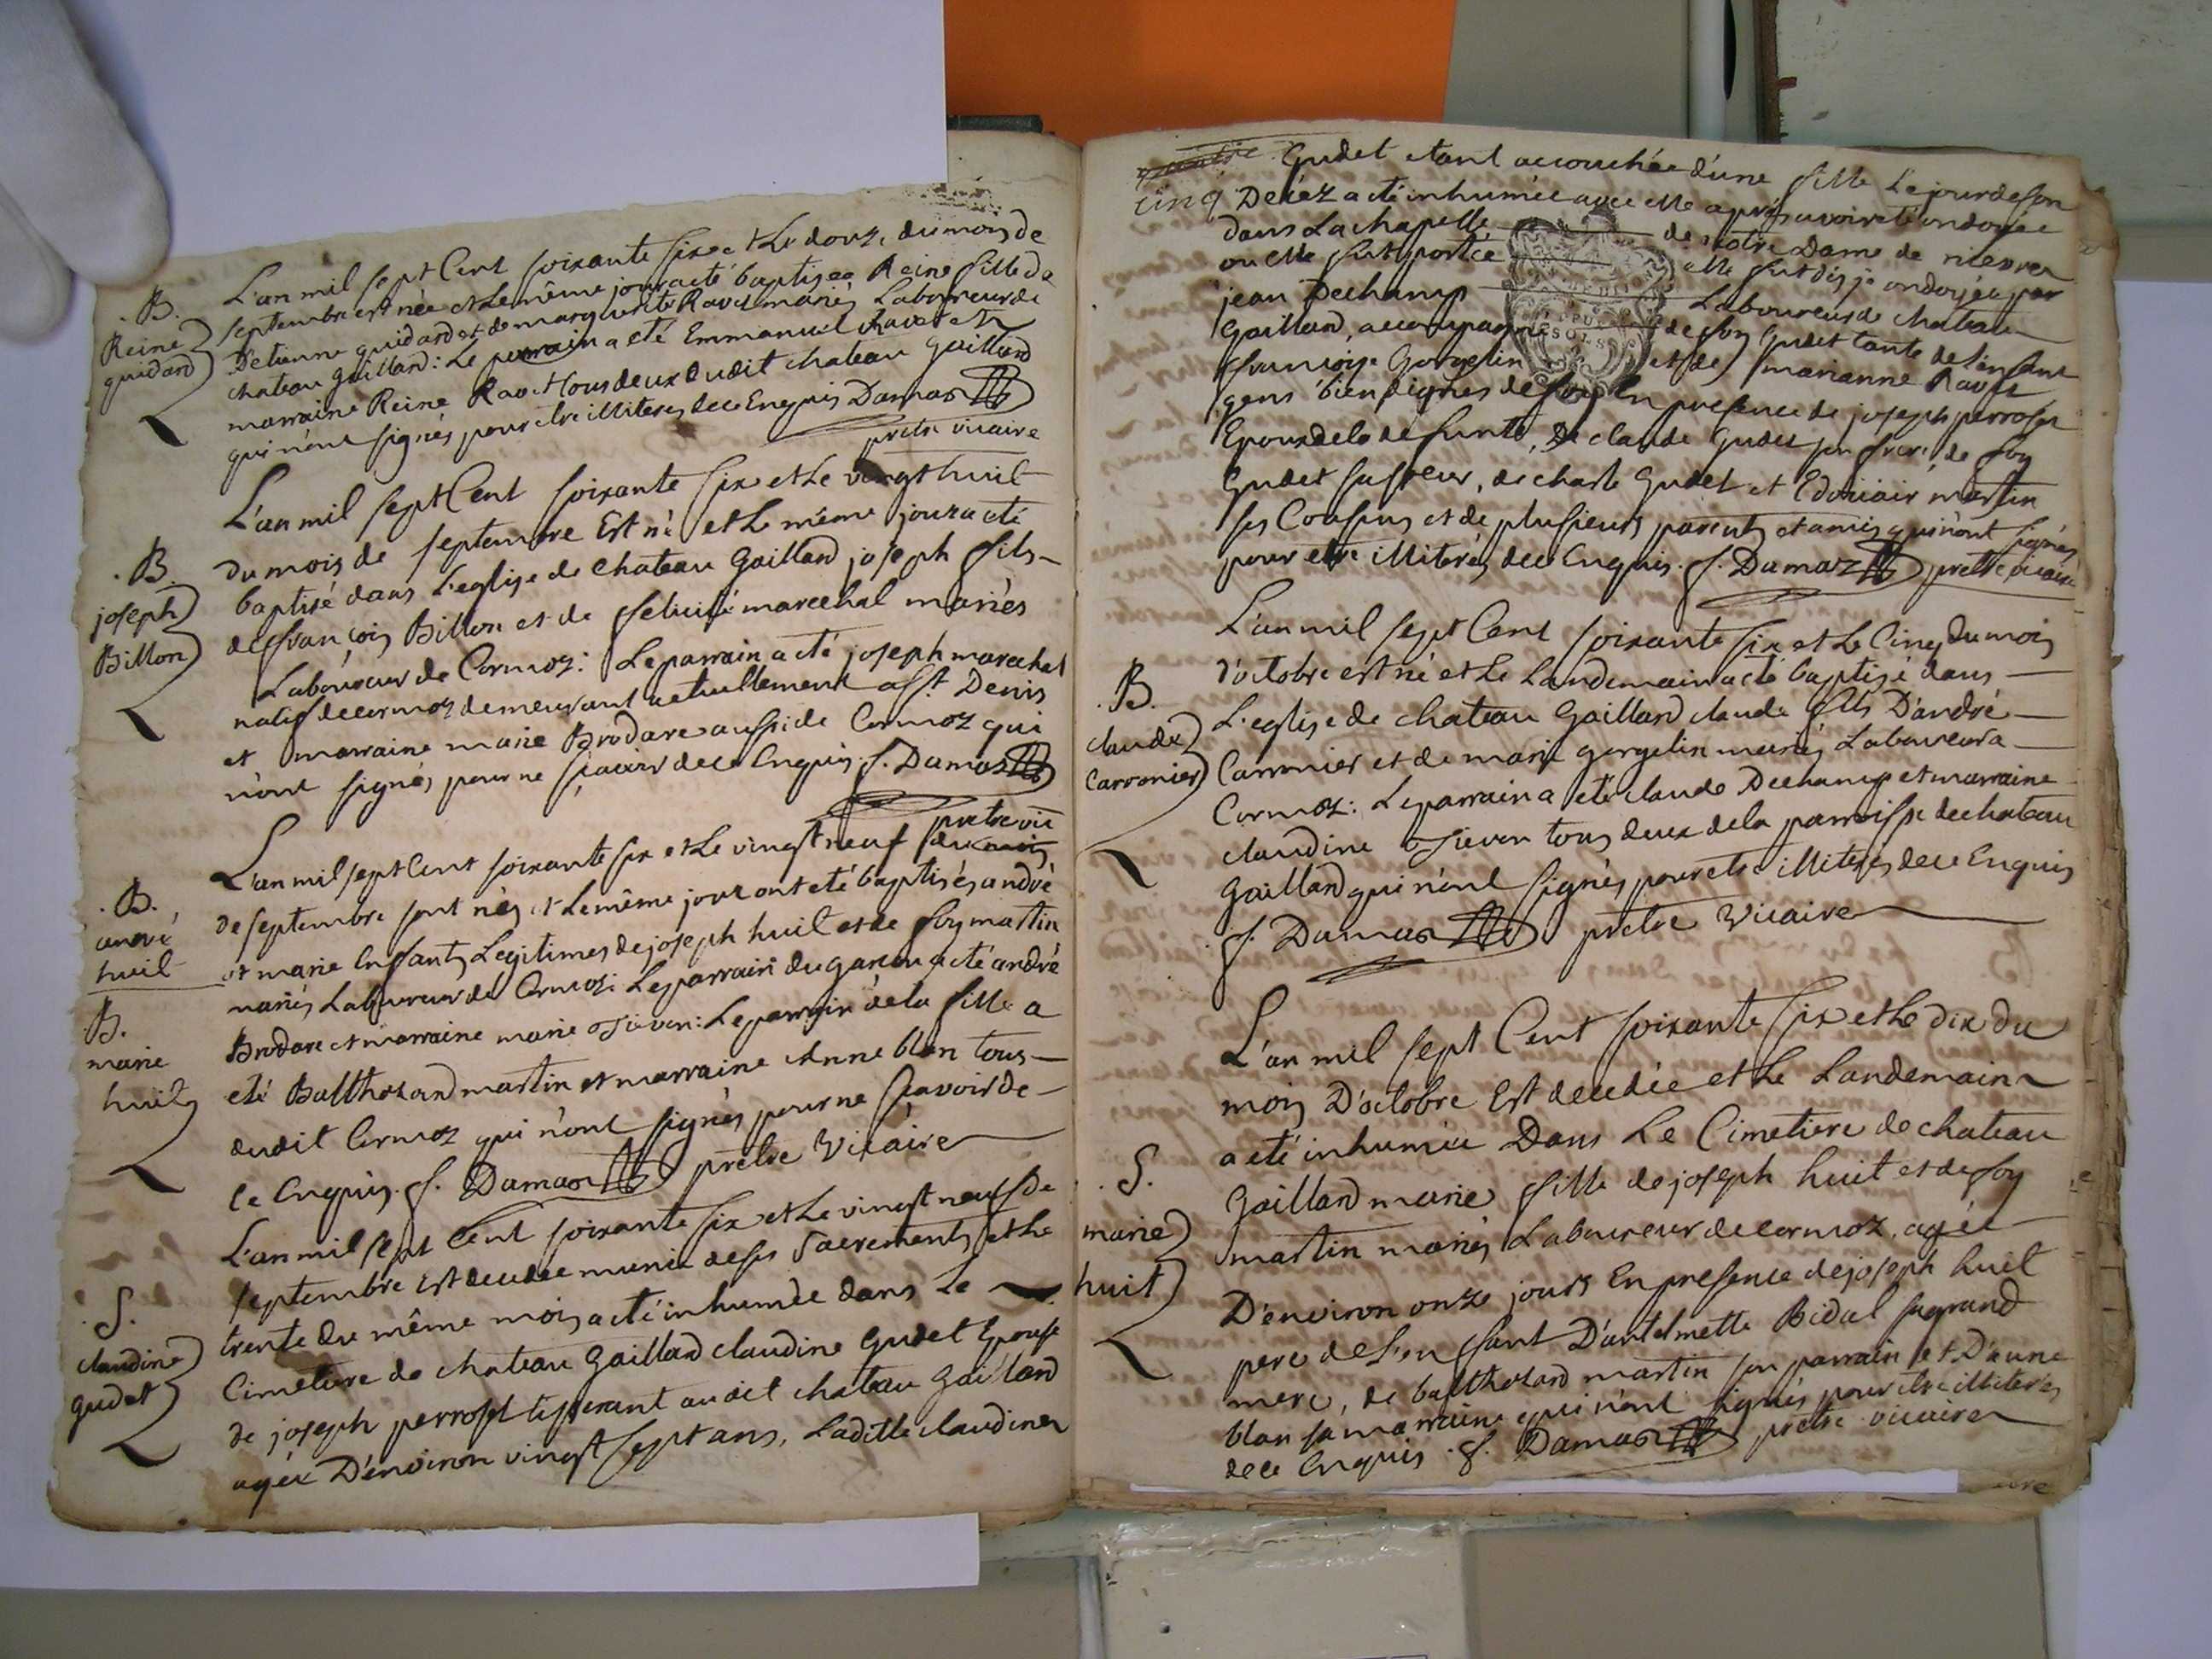 .B.
Reine
guidard
L'an mil sept Cent soixante six et Le douze du mois de
septembre est née et Le même jour a eté baptisée Reine fille de
D'etienne guidard et de marguerite Ravet mariés Laboureur de
chateau gaillard: Le parrain a eté Emmanuel Ravet et
marraine Reine Ravet tous deux dudit chateau gaillard
qui n'ont signés pour etre illiterés de ce Enquis Damas
pretre vicaire
.B.
joseph
Billon
L'an mil sept Cent soixante six et Le vingt huit
du mois de septembre Est né et Le même jour a eté
baptisé dans L'eglise de Chateau Gaillard joseph fils
de françois Billon et de felicité marechal mariés
Laboureur de Cormoz: Le parrain a eté joseph marechal
natif de cormoz demeurant actuellement a St. Denis
et marraine marie Brodare aussi de Cormoz qui
n'ont signés pour ne sçavoir de ce Enquis f. Damas
pretre vic
.B.
andré
huit
B.
marie
huit
L'an mil sept Cent soixante six et Le vingt neuf du mois
de septembre sont nés et Le même jour ont eté baptisés andré
et marie Enfants Legitimes de joseph huit et de foy martin
mariés Laboureur de Cormoz: Le parrain du garçon a eté andré
Brodare et marraine marie Tievon: Le parrain de la fille a
eté Balthozard martin et marraine Anne blan tous
dudit Cormoz qui n'ont signés pour ne sçavoir de
ce Enquis. f. Damas pretre Vicaire
.S.
claudine
gudet
L'an mil sept Cent soixante six et Le vingt neuf de
septembre Est decedée munie de ses Sacrements et Le
trente du même mois a eté inhumée dans Le
Cimetiere de chateau Gaillard claudine Gudet Epouse
de joseph perroset tisserant audit chateau Gaillard
agée D'environ vingt sept ans, Laditte claudine
cinq
Gudet etant accouchée d'une fille Le jour de son
Decéz a eté inhumée avec elle après avoir eté ondoyée
dans La chapelle de Notre Dame de
ou elle fut portée elle fut dis je ondoyée par
jean Dechamp Laboureur de chateau
Gaillard, accompagné de foy Gudet tante de l'enfant
françoise Gorgelin et de marianne Ravet
gens bien dignes de foy En presence de joseph perroset
Epoux de la defunte, De claude Gudet son frere, de foy
Gudet sa soeur, de charle Gudet et Edouair martin
ses Cousins et de plusieurs parents et amis qui n'ont signés
pour etre illiterés de ce Enquis. f. Damaz pretre vicaire
.B.
claude
Carronier
L'an mil sept Cent soixante six et Le Cinq du mois
d'octobre est né et Le Landemain a eté baptisé dans
L'eglise de chateau Gaillard claude fils D'andré
Carronier et de marie gorgelin mariés Laboureur a
Cormoz: Le parrain a eté claude Dechamp et marraine
claudine Tievon tous deux de la parroisse de chateau
Gaillard qui n'ont signés pour etre illiterés de ce Enquis
f. Damas pretre Vicaire
.S.
marie
huit
L'an mil sept Cent soixante six et Le dix du
mois D'octobre Est decedée et Le Landemain
a eté inhumée Dans Le Cimetiere de chateau
Gaillard marie fille de joseph huit et de foy
martin mariés Laboureur de cormoz, agée
D'environ onze jours En presence de joseph huit
pere de L'enfant D'antelmette Bidal sa grand
mere, de balthozard martin son parrain et D'anne
blan sa marraine qui n'ont signés pour etre illiterés
de ce Enquis. f. Damas pretre vicaire